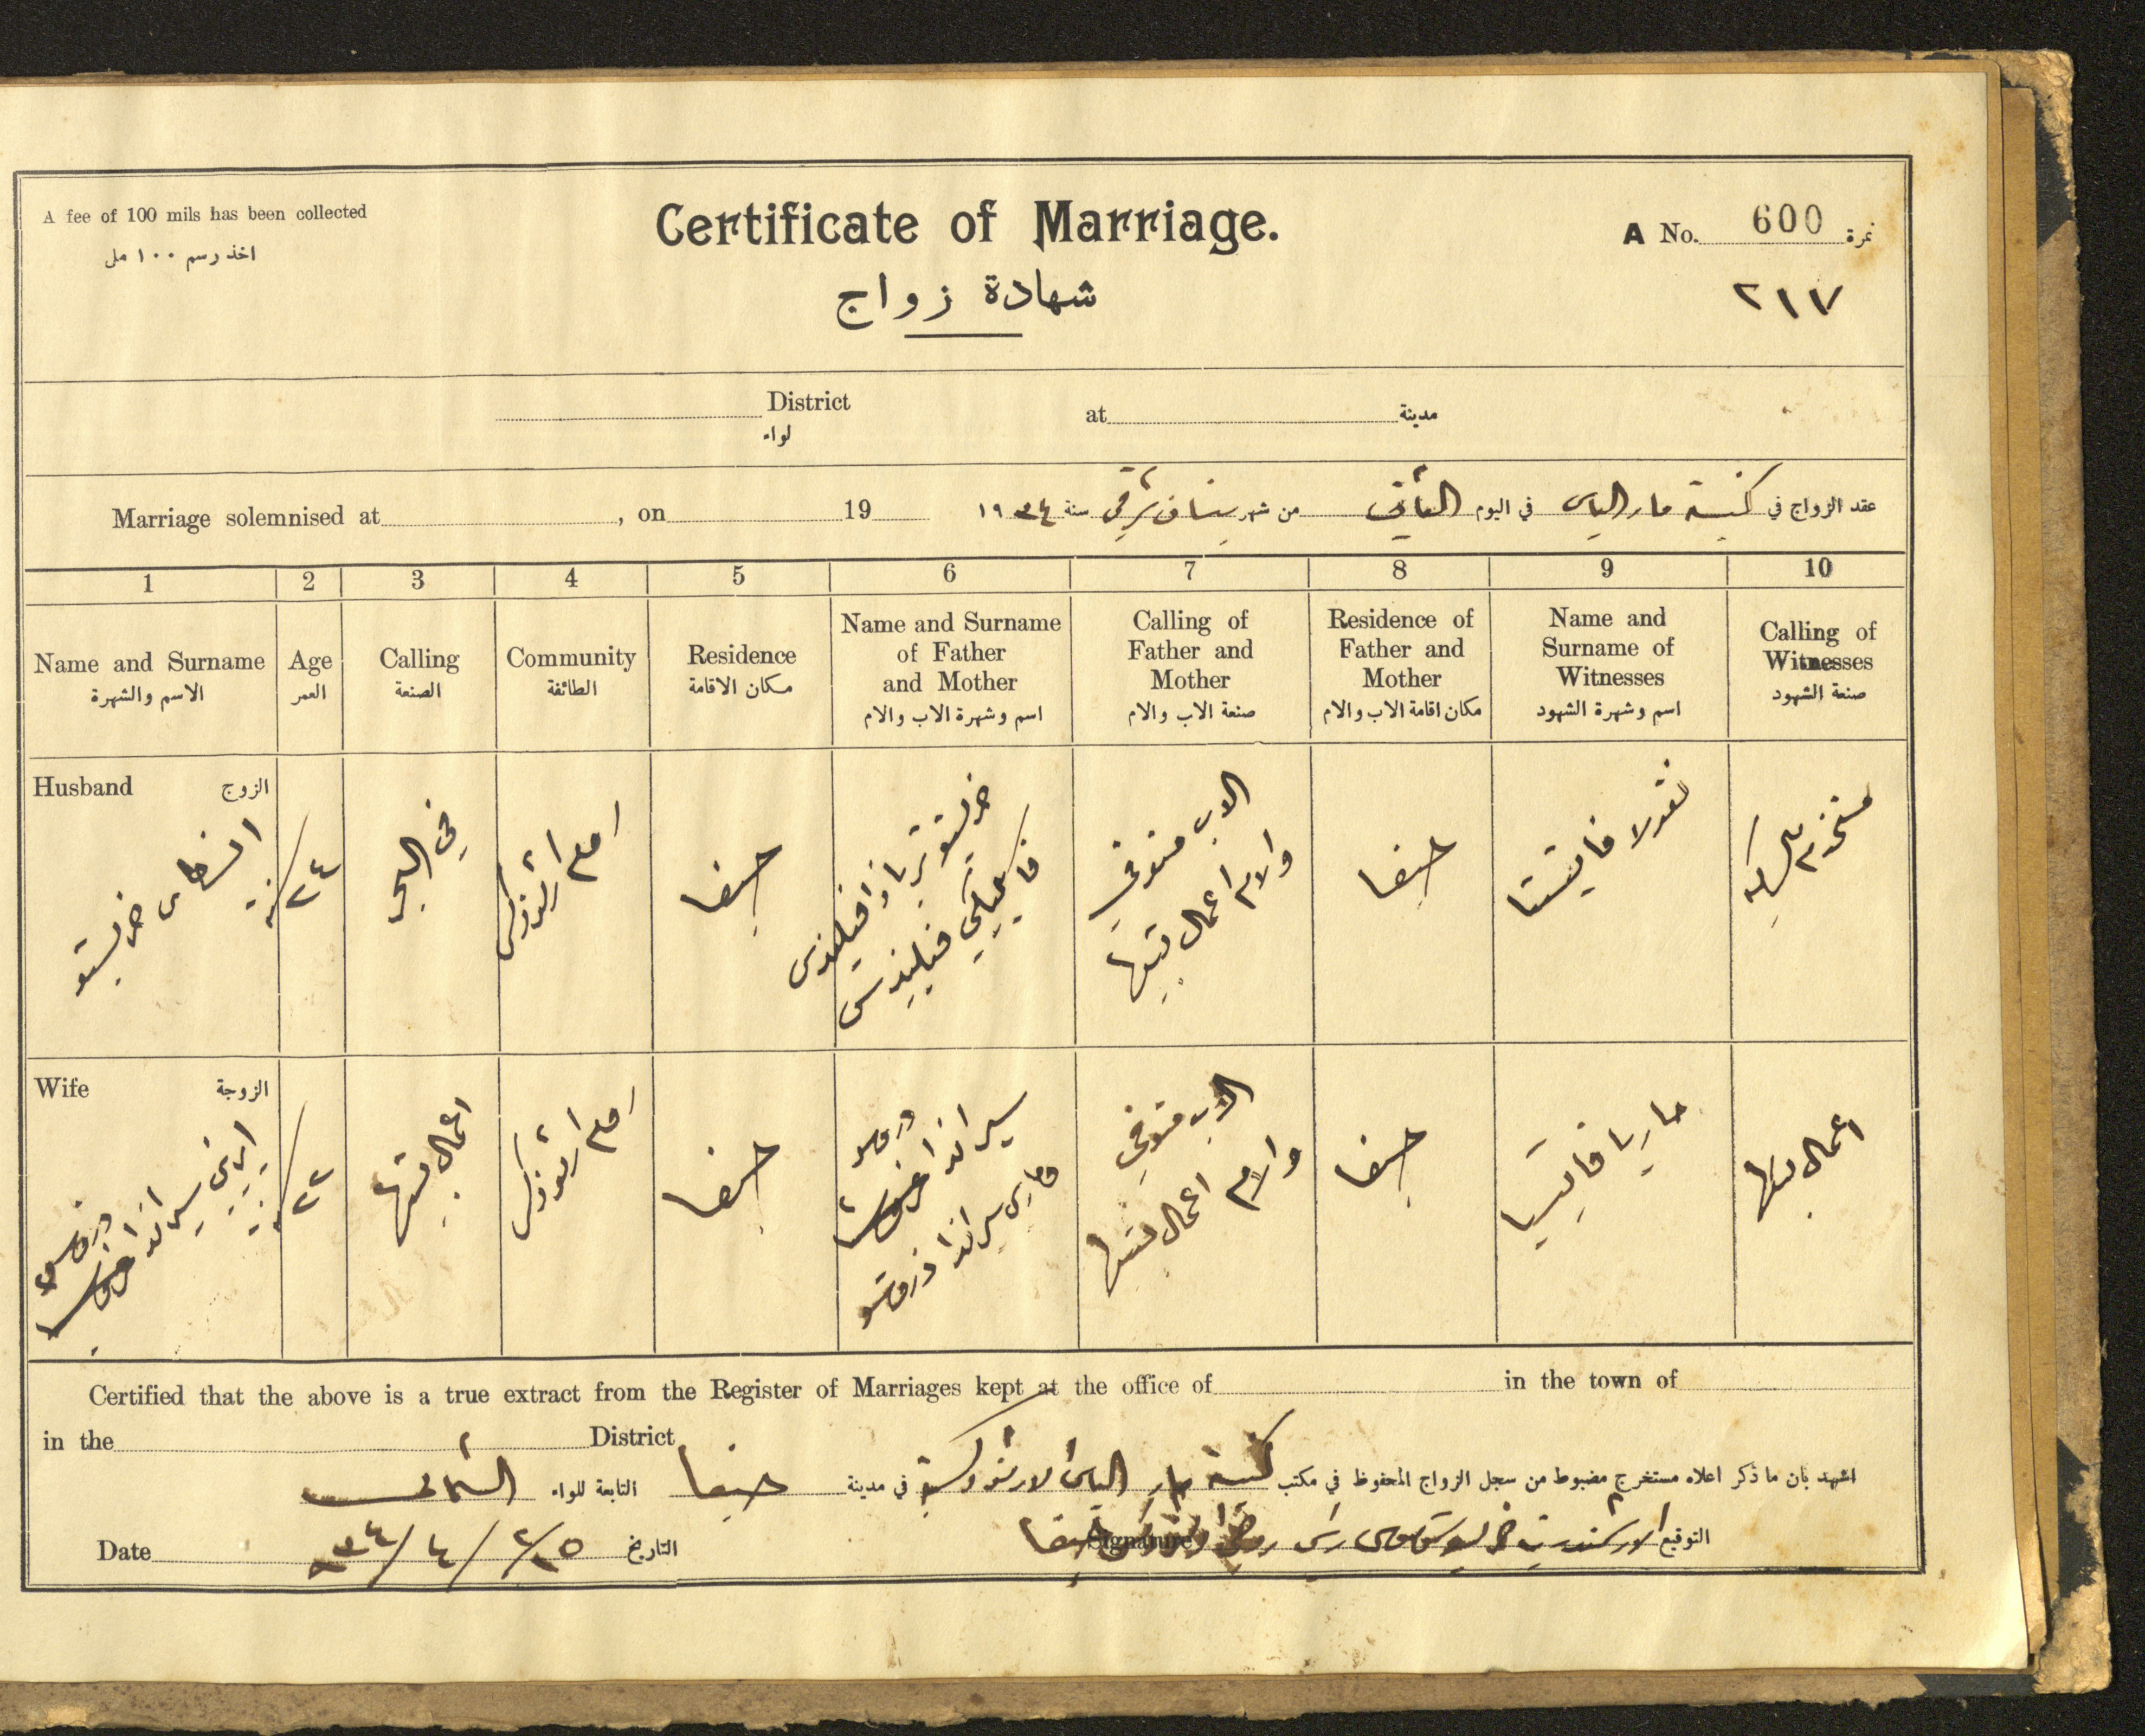 A fee of 100 mils has been collected
اخذ رسم ١٠٠ مل
Certificate of Marriage.
شهادة زواج
A No. 600 نمرة
٢١٧
District
لواء
at مدينة
Marriage solemnised at , on 19
عقد الزواج في كنيسة مار الياس في اليوم الثاني من شهر نيسان شرقي سنة ١٩٣٤
1 2 3 4 5 6 7 8 9 10
Name and Surname
الاسم والشهرة
Age
العمر
Calling
الصنعة
Community
الطائفة
Residence
مكان الاقامة
Name and Surname
of Father
and Mother
اسم وشهرة الاب والام
Calling of
Father and
Mother
صنعة الاب والام
Residence of
Father and
Mother
مكان اقامة الاب والام
Name and
Surname of
Witnesses
اسم وشهرة الشهود
Calling of
Witnesses
صنعة الشهود
Husband الزوج
خريستو
٢٤ سنة
في البحر
روم ارثوذكس
حيفا
الاب متوفي
والام اعمال بيتها
حيفا
نقولا
Wife الزوجة
٢٢ سنة
اعمال بيتها
روم ارثوذكس
حيفا
الاب متوفي
والام اعمال بيتها
حيفا
ماريا
اعمال بيتها
Certified that the above is a true extract from the Register of Marriages kept at the office of in the town of
in the District
اشهد بان ما ذكر اعلاه مستخرج مضبوط من سجل الزواج المحفوظ في مكتب كنيسة مار الياس الارثوذكسية في مدينة حيفا التابعة للواء الشمالي
Date ٢/١٥ / ٤ / ٩٣٤ التاريخ
Signature حيفا التوقيع